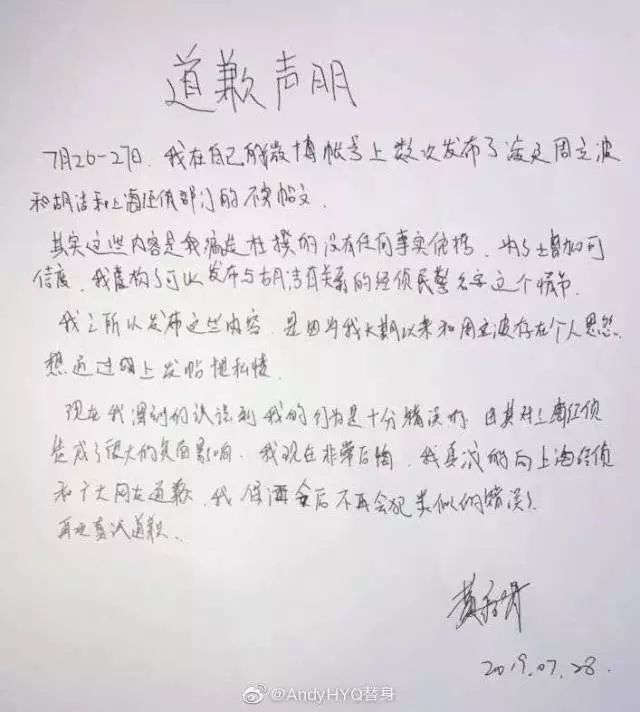 道歉声明
7月26-27日，我在自己的微博帐号上数次发布了凌是周立波
和胡洁和上海经侦部门的不实帖文．
其实这些内容是我编造杜撰的没有任何事实依据，为了增加可
信度，我虚构了可以发布与胡洁有关系的经侦民警名字这个情节．
我之所以发布这些内容，是因为我长期以来和周立波存在个人恩怨．
想通过网上发帖
现在我深刻的认识到我的行为是十分错误的，尤其对上海经侦
造成了很大的负面影响．我现在非常后悔，我真诚的向上海经侦
和广大网友道歉，我保证今后不再会犯类似的错误！
再次真诚道歉．
黄
2019.07.28
@AndyHYQ替身